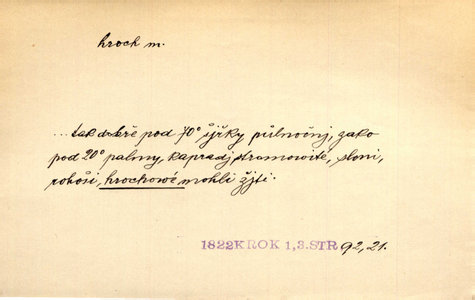 hroch m.
...tak dobře pod 70° ssjřky půlnočnj, gako
pod 20° palmy, kapradj stromowité, sloni,
rohoši, hrochowé mohli žjti.
1822KROK 1,3.STR 92,21.